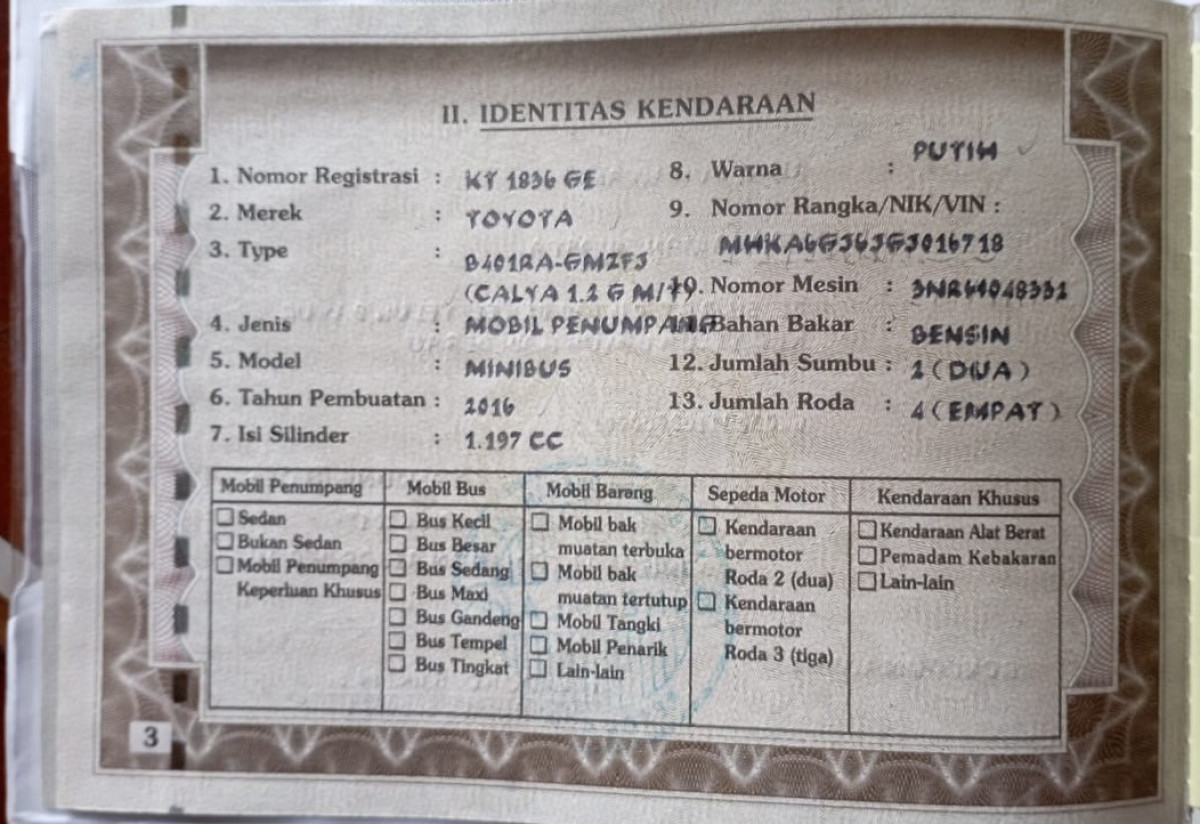 II. IDENTITAS KENDARAAN
1. Nomor Registrasi : KT 1836 GE
2. Merek : TOYOTA
3. Type : B401RA-GMZFJ
(CALYA 1.2 G M/T)
4. Jenis : MOBIL PENUMPANG
5. Model : MINIBUS
6. Tahun Pembuatan : 2016
7. Isi Silinder : 1.197 CC
8. Warna : PUTIH
9. Nomor Rangka/NIK/VIN :
MHKA6GJ6JGJ016718
10. Nomor Mesin :
11. Bahan Bakar : BENSIN
12. Jumlah Sumbu : 2 (DUA)
13. Jumlah Roda : 4 (EMPAT)
Mobil Penumpang
Sedan
Bukan Sedan
Mobil Penumpang
Keperluan Khusus
Mobil Bus
Bus Kecil
Bus Besar
Bus Sedang
Bus Maxi
Bus Gandeng
Bus Tempel
Bus Tingkat
Mobil Barang
Mobil bak
muatan terbuka
Mobil bak
muatan tertutup
Mobil Tangki
Mobil Penarik
Lain-lain
Sepeda Motor
Kendaraan
bermotor
Roda 2 (dua)
Kendaraan
bermotor
Roda 3 (tiga)
Kendaraan Khusus
Kendaraan Alat Berat
Pemadam Kebakaran
Lain-lain
3